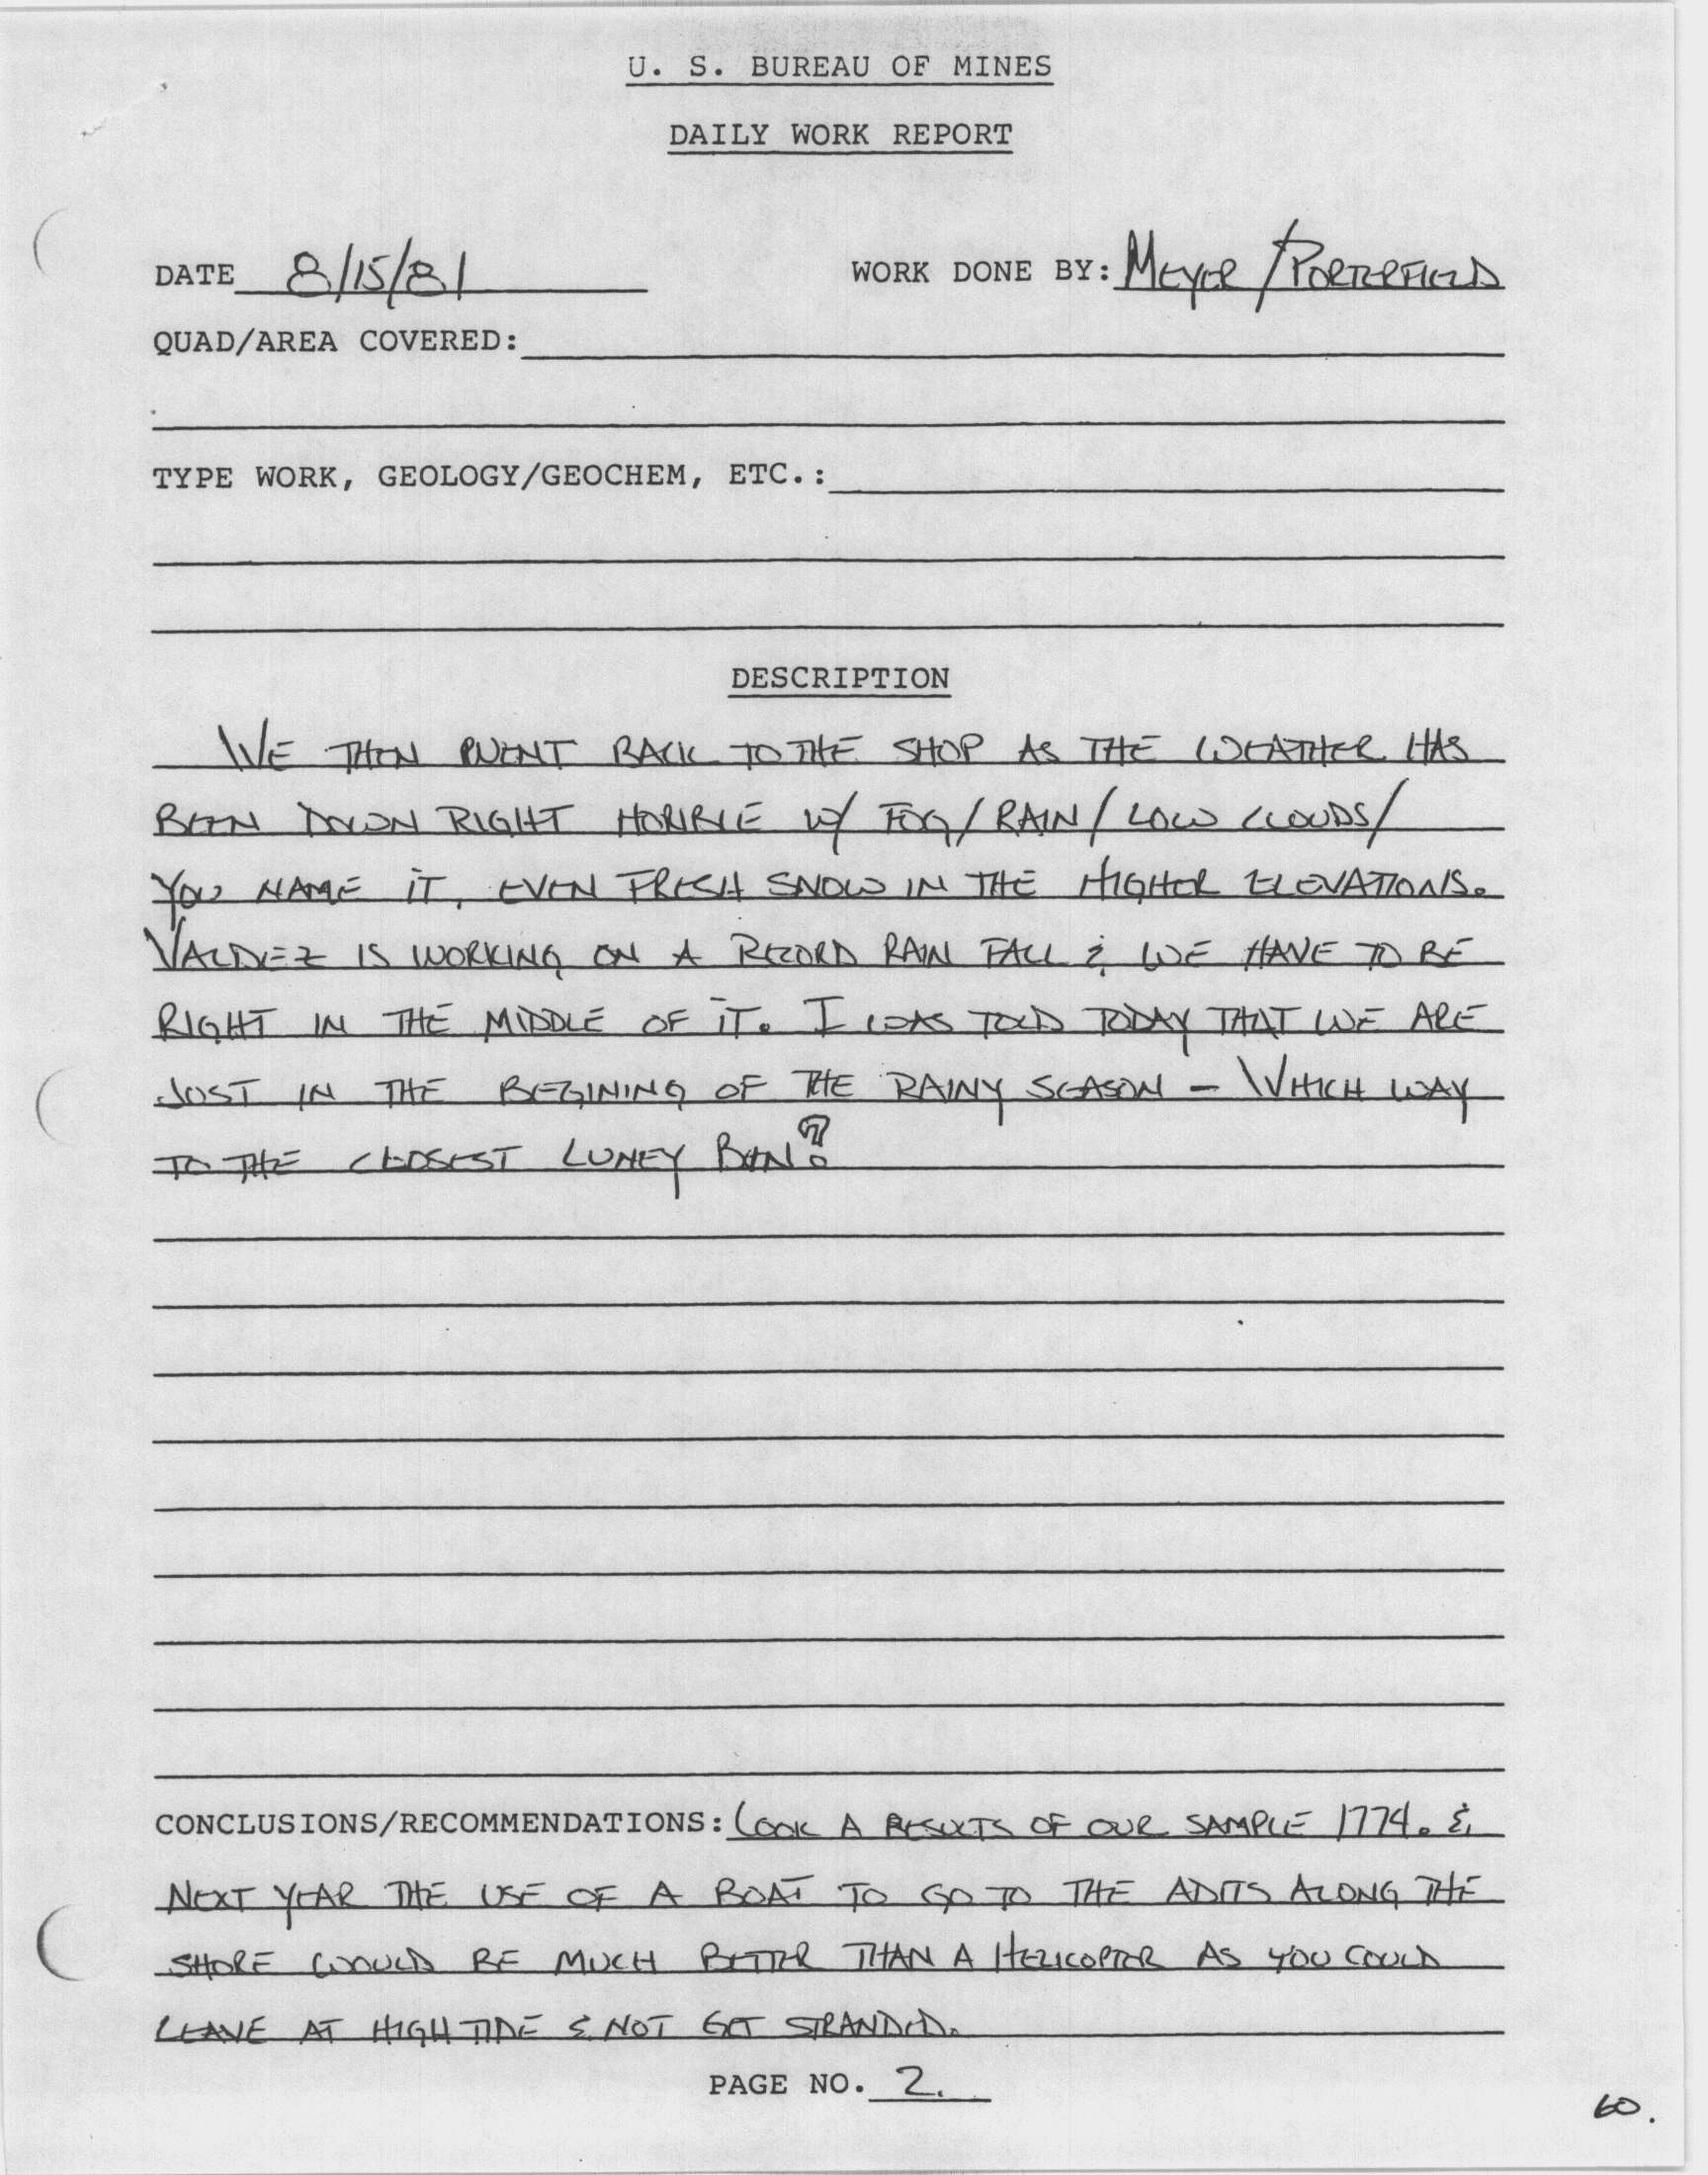 U. S. BUREAU OF MINES
DAILY WORK REPORT
DATE 8/15/81 WORK DONE BY: MEYER / PORTERFIELD
QUAD/AREA COVERED:
TYPE WORK, GEOLOGY/GEOCHEM, ETC.:
DESCRIPTION
WE THEN WENT BACK TO THE SHOP AS THE WEATHER HAS
BEEN DOWN RIGHT HORIBLE W/ FOG/RAIN/LOW CLOUDS/
YOU NAME IT, EVEN FRESH SNOW IN THE HIGHER ELEVATIONS.
VALDEZ IS WORKING ON A RECORD RAIN FALL & WE HAVE TO BE
RIGHT IN THE MIDDLE OF IT. I WAS TOLD TODAY THAT WE ARE
JUST IN THE BEGINING OF THE RAINY SEASON - WHICH WAY
TO THE CLOSEST LUNEY BIN?
CONCLUSIONS/RECOMMENDATIONS: LOOK A RESULTS OF OUR SAMPLE 1774. &
NEXT YEAR THE USE OF A BOAT TO GO TO THE ADITS ALONG THE
SHORE WOULD BE MUCH BETTER THAN A HELICOPTER AS YOU COULD
LEAVE AT HIGH TIDE & NOT GET STRANDED.
PAGE NO. 2.
60.